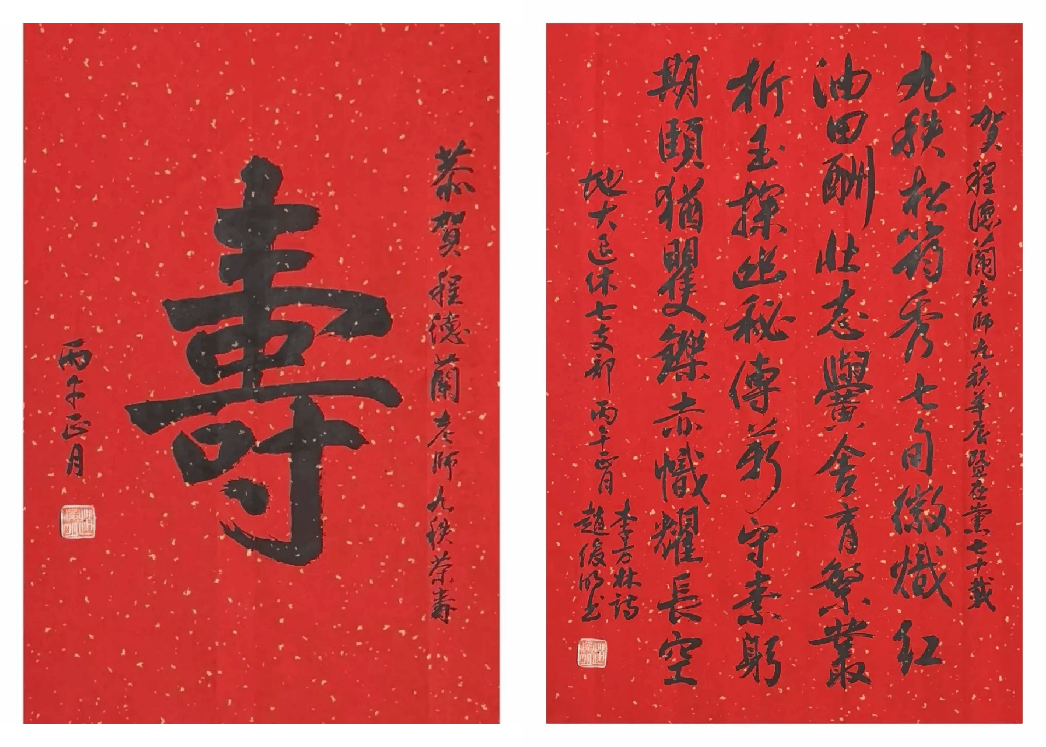 恭賀程德蘭老師九秩荣壽
壽
丙午正月
賀程德蘭老師九秩華辰暨在黨七十載
九秩松筠秀七旬徽熾紅
油田酬壯志黌舍育繁叢
析玉探幽秘傳薪守素躬
期頤猶矍鑠赤幟耀長空
地大退休七支部 丙午正月
李方林詩
趙俊明书